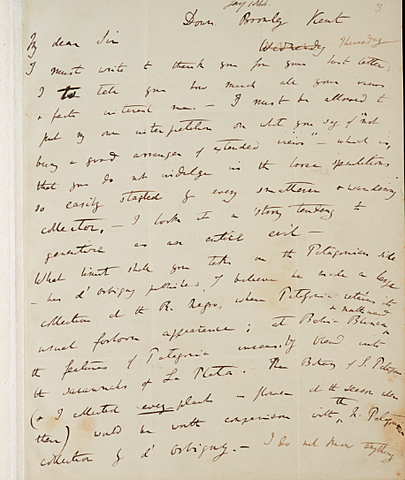 Jany 1844.
3
Down Bromley Kent
My dear Sir Wednesday Thursday
I must write to thank you for your last letter;
I to tell you how much all your views
& facts interest me. — I must be allowed to
put my own interpretation on what you say of "not
being a good arranger of extended views" — which is,
that you do not indulge in the loose speculations
so easily started by every smatterer & wandering
collector. — I look at a strong tendency to
generalise as an entire evil —
What limit shall you take on the Patagonian side
— has d'Orbigny published, I believe he made a large
collection at the R. Negro, where Patagonia retains its
usual forlorn appearance; at Bahia Blanca & northward
the features of Patagonia insensibly blend into
the savannahs of La Plata. The Botany of S. Patagonia
(& I collected every plant in flower at the season when
there) would be worth comparison with the N. Patagonian
collection by d'Orbigny. — I do not know anything